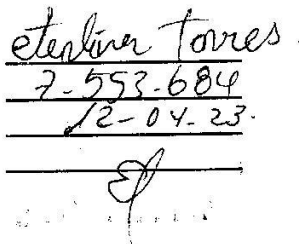 eterlina Torres
7-553-684
12-04-23.